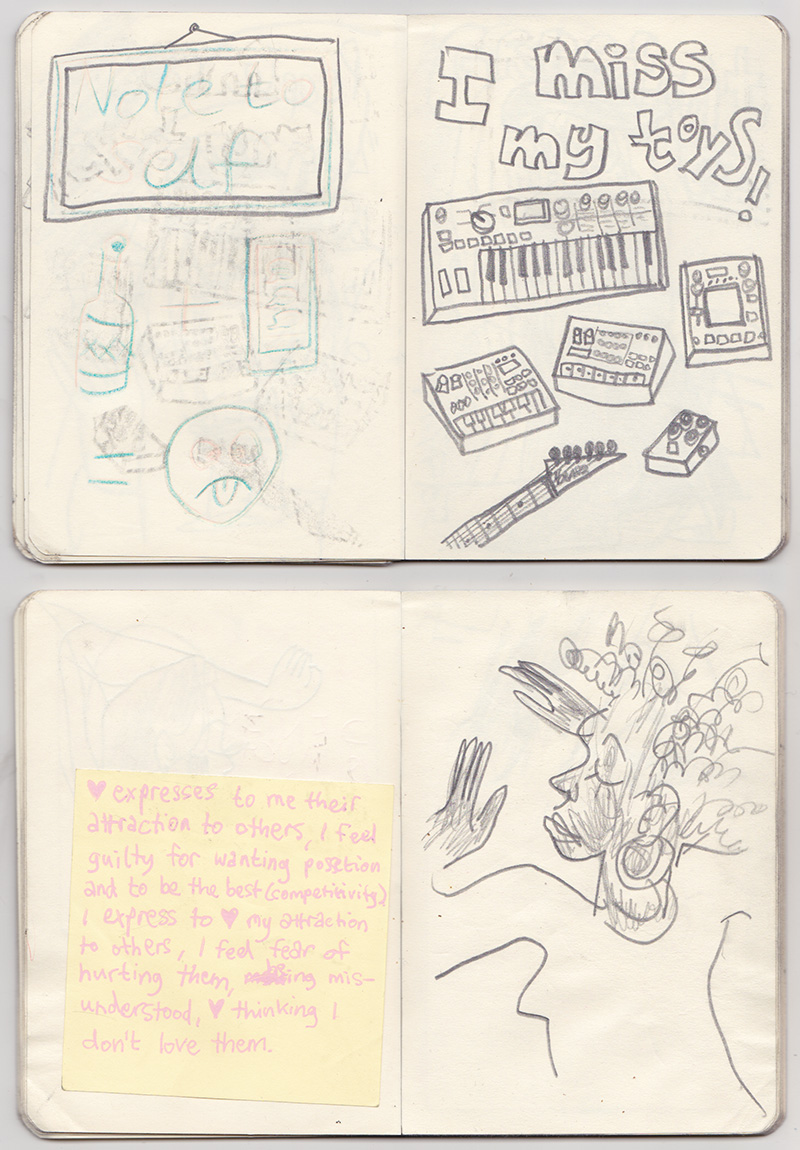 Note to
self
I miss
my toys!
Ibanez
♥ expresses to me their
attraction to others, I feel
guilty for wanting posetion
and to be the best (competitivity)
I express to ♥ my attraction
to others, I feel fear of
hurting them, mis-
understood, ♥ thinking I
don't love them.